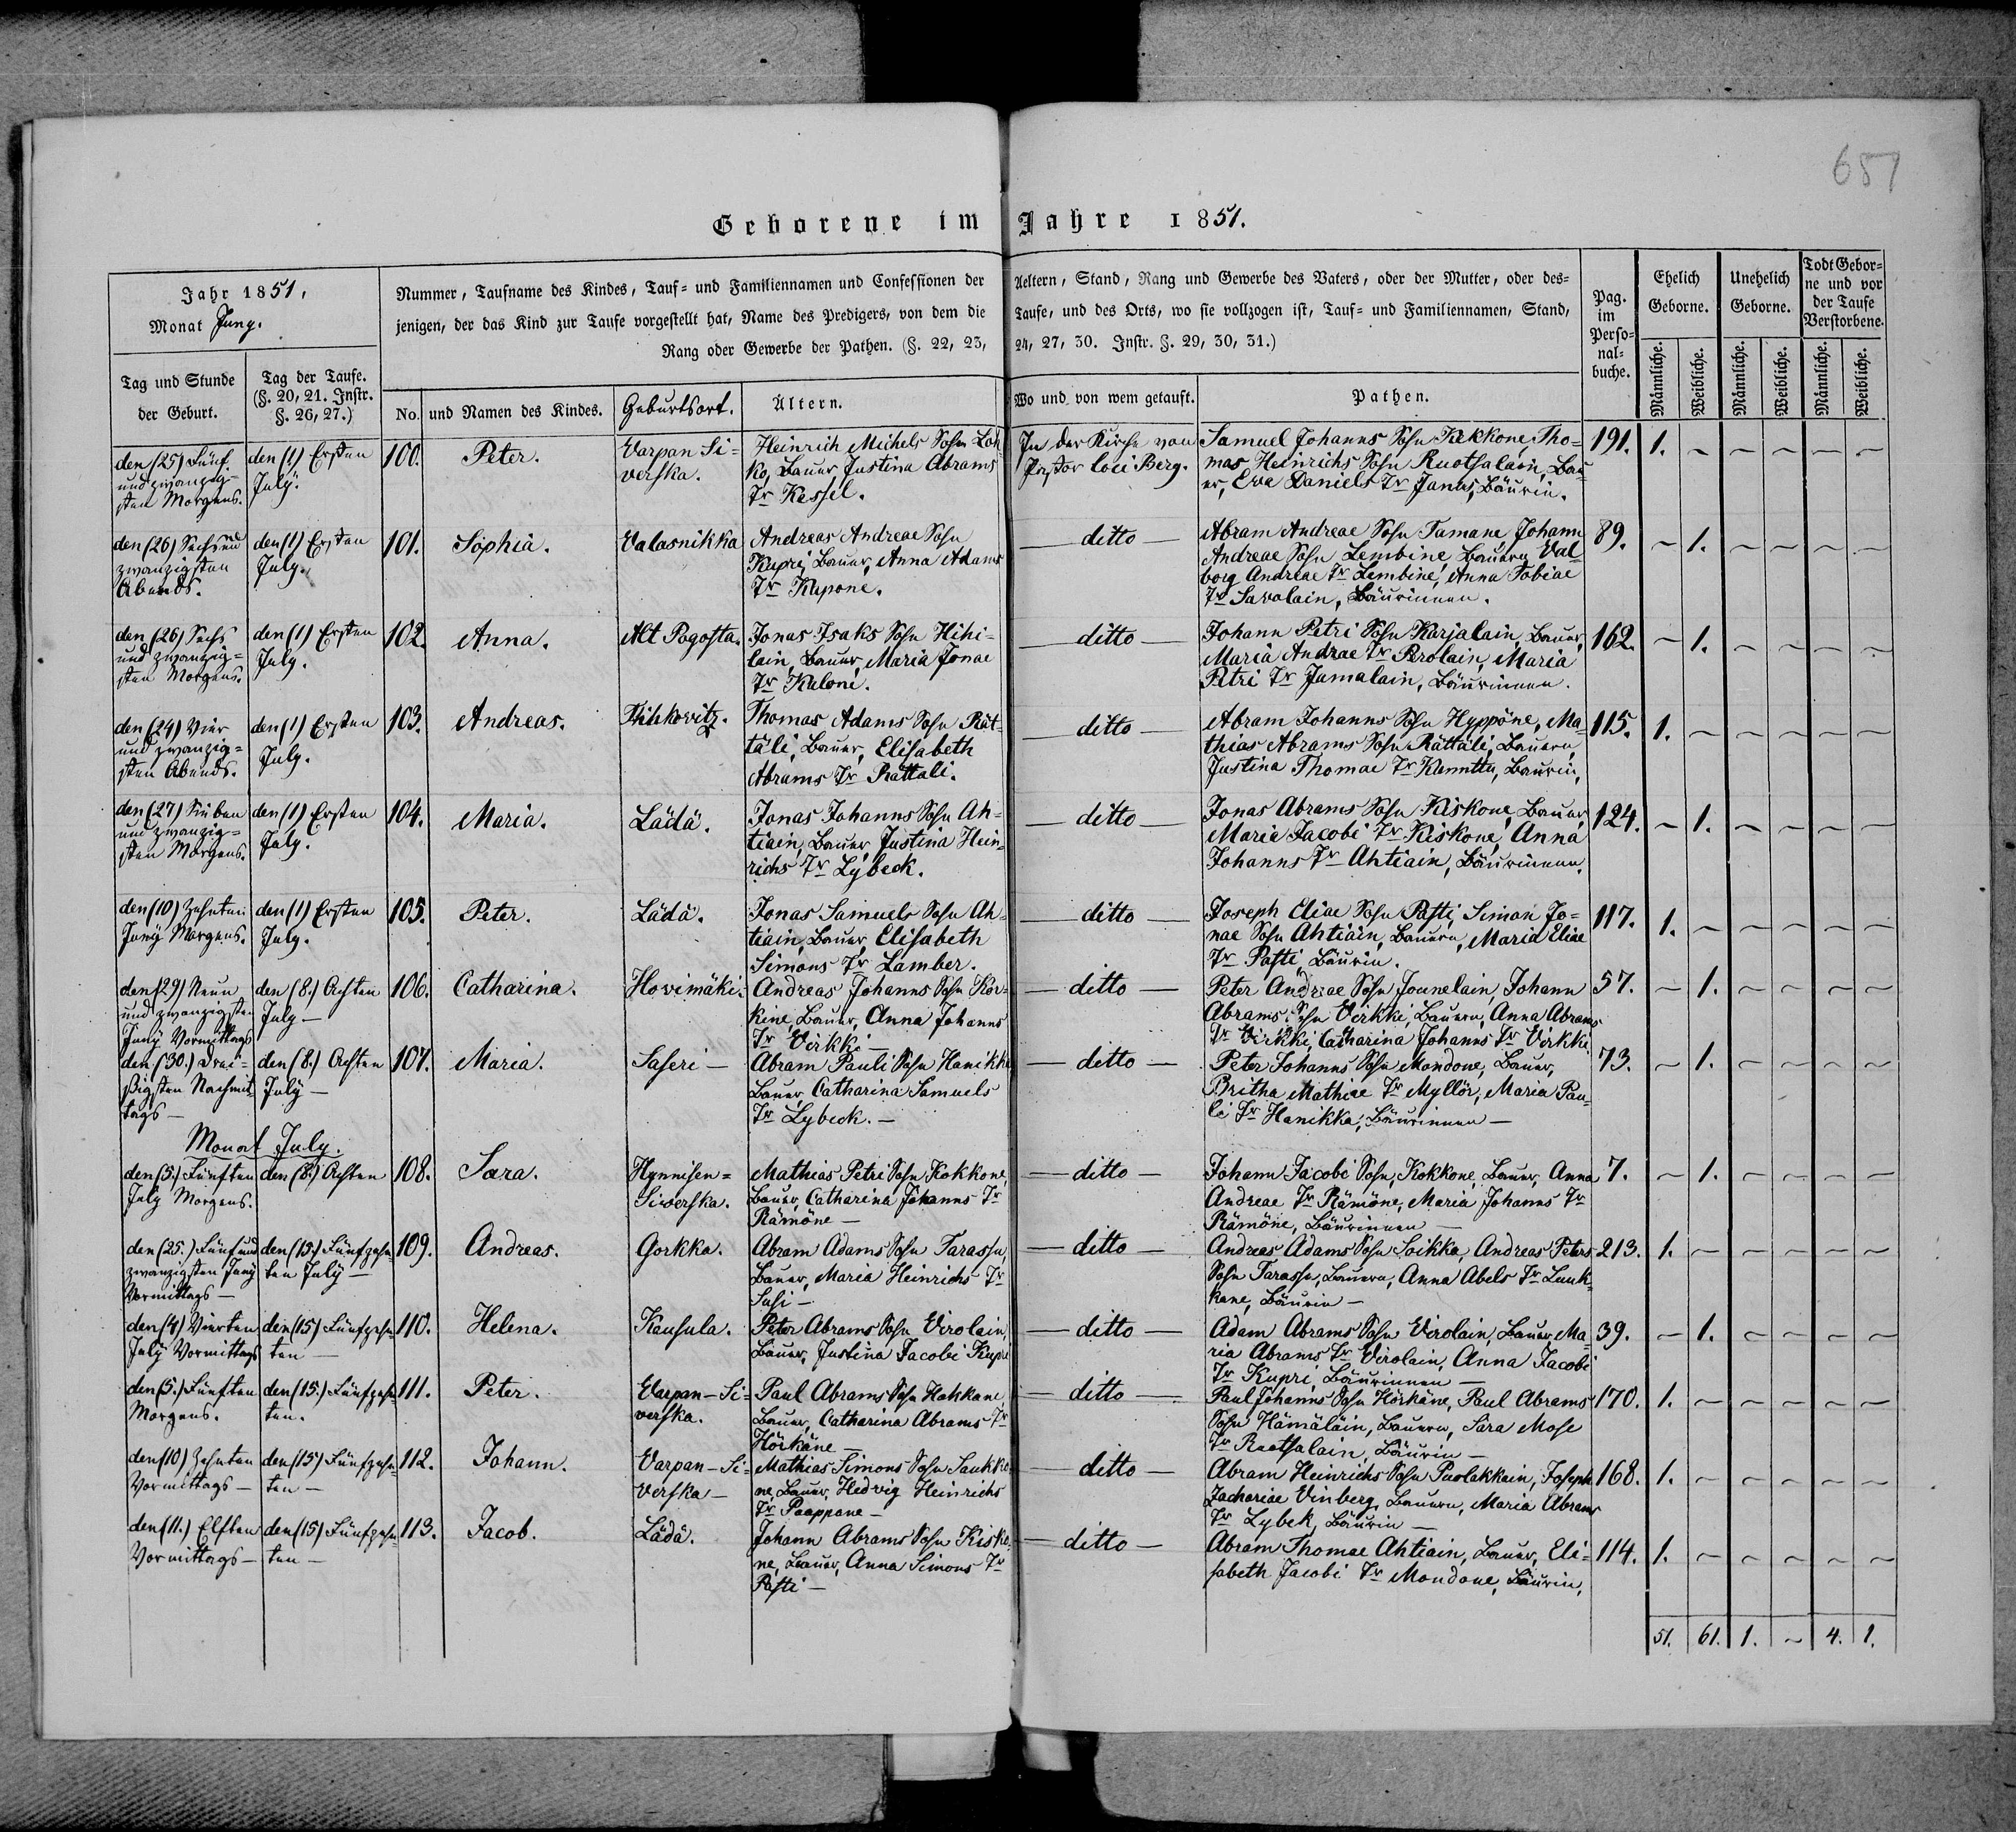 651
Geborene im Jahre 1851.
Jahr 1851,
Monat Juny.
Nummer, Taufname des Kindes, Tauf= und Familiennamen und Confessionen der Aeltern, Stand, Rang und Gewerbe des Vaters, oder der Mutter, oder des=
jenigen, der das Kind zur Taufe vorgestellt hat, Name des Predigers, von dem die Taufe, und des Orts, wo sie vollzogen ist, Tauf= und Familiennamen, Stand,
Rang oder Gewerbe der Pathen. (§. 22, 23, 24, 27, 30. Instr. §. 29, 30, 31.)
Pag.
im
Perso=
nal=
buche.
Ehelich
Geborne.
Unehelich
Geborne.
Todt Gebor=
ne und vor
der Taufe
Verstorbene.
Tag und Stunde
der Geburt.
Tag der Taufe.
(§. 20, 21. Instr.
§. 26, 27.)
No. und Namen des Kindes.
Geburtsort.
Ältern.
Wo und von wem getauft.
Pathen.
Männliche.
Weibliche.
Männliche.
Weibliche.
Männliche.
Weibliche.
den (25) Fünf
und zwanzig=
sten Morgens.
den (1) Ersten
July.
100.
Peter.
Varpan Si=
verska.
Heinrich Michels Sohn Loh
ko, Bauer Justina Abrams
Tr Kessel.
In der Kirche von
Pastor loci Berg.
Samuel Johanns Sohn Kekkone, Tho=
mas Heinrichs Sohn Ruotsalain, Bau
er, Eva Daniels Tr Janus, Bäurin.
191. 1. ~ ~ ~ ~ ~
den (26) Sechsund
zwanzigsten
Abends.
den (1) Ersten
July.
101.
Sophia.
Valasnikka
Andreas Andreae Sohn
Kupri, Bauer, Anna Adams
Tr Kupone.
ditto
Abram Andreae Sohn Tamane, Johann
Andreae Sohn Lembine, Bauern, Val
borg Andreae Tr Lembine, Anna Tobiae
Tr Savolain, Bäurinnen.
89. ~ 1. ~ ~ ~ ~
den (26) Sechs
und zwanzig=
sten Morgens.
den (1) Ersten
July.
102.
Anna.
Alt Pogosta.
Jonas Isaks Sohn Hihi=
lain, Bauer, Maria Jonae
Tr Kuloni.
ditto
Johann Petri Sohn Karjalain, Bauer,
Maria Andrae Tr Perolain, Maria
Petri Tr Jumalain, Bäurinnen.
162. ~ 1. ~ ~ ~ ~
den (24) Vier
und zwanzig=
sten Abends.
den (1) Ersten
July.
103.
Andreas.
Thomas Adams Sohn Rät=
täli, Bauer, Elisabeth
Abrams Tr Rättali.
ditto
Abram Johanns Sohn Hyppöne, Ma=
thias Abrams Sohn Rättäli, Bauern,
Justina Thomae Tr Kannttu, Bäurin,
115. 1. ~ ~ ~ ~ ~
den (27) Sieben
und zwanzig=
sten Morgens.
den (1) Ersten
July.
104.
Maria.
Lädä.
Jonas Johanns Sohn Ah=
tiain, Bauer, Justina Hein=
richs Tr Lybeck.
ditto
Jonas Abrams Sohn Kiskone, Bauer,
Maria Jacobi Tr Kiskone, Anna
Johanns Tr Ahtiain, Bäurinnen.
124. ~ 1. ~ ~ ~ ~
den (10) Zehnten
Juny Morgens.
den (1) Ersten
July.
105.
Peter.
Lädä.
Jonas Samuels Sohn Ah=
tiain, Bauer, Elisabeth
Simons Tr Lamber.
ditto
Joseph Eliae Sohn Pasti, Simon Jo=
nae Sohn Ahtiain, Bauern, Maria Eliae
Tr Pasti, Bäurin.
117. 1. ~ ~ ~ ~ ~
den (29) Neun
und zwanzigsten
Juny Vormittags
den (8.) Achten
July —
106.
Catharina.
Hovimäki.
Andreas Johanns Sohn Kör=
kine, Bauer, Anna Johanns
Tr Virkki —
ditto
Peter Andreae Sohn Jounelain, Johann
Abrams Sohn Virkki, Bauern, Anna Abrams
Tr Virkki, Catharina Johanns Tr Virkki
57. ~ 1. ~ ~ ~ ~
den (30.) Drei=
ßigsten Nachmit
tags —
den (8.) Achten
July —
107.
Maria.
Saferi —
Abram Pauli Sohn Hanikka
Bauer, Catharina Samuels
Tr Lybeck. —
ditto
Peter Johanns Sohn Mondone, Bauer,
Britha Mathiae Tr Myllör, Maria Pau=
li Tr Hanikka, Bäurinnen —
73. ~ 1. ~ ~ ~ ~
Monat July.
den (5.) Fünften
July Morgens.
den (8.) Achten
108.
Sara.
Hynnisen=
Siwerska.
Mathias Petri Sohn Kokkone,
Bauer, Catharina Johanns Tr
Rämöne —
ditto
Johann Jacobi Sohn, Kokkone, Bauer, Anna
Andreae Tr Rämöne, Maria Johanns Tr
Rämöne, Bäurinnen —
7. ~ 1. ~ ~ ~ ~
den (25.) Fünf und
zwanzigsten Juny
Vormittags —
den (15.) Fünfzehn
ten July —
109.
Andreas.
Gorkka.
Abram Adams Sohn Tarassu,
Bauer, Maria Heinrichs Tr
Susi —
ditto
Andreas Adams Sohn Soikka, Andreas Peters
Sohn Tarassu, Bauern, Anna Abels Tr Luuk
kane, Bäurin —
213. 1. ~ ~ ~ ~ ~
den (4) Vierten
July Vormittags
den (15) Fünfzehn
ten —
110.
Helena.
Kausula.
Peter Abrams Sohn Virolain,
Bauer, Justina Jacobi Kupri
ditto
Adam Abrams Sohn Virolain, Bauer, Ma
ria Abrams Tr Virolain, Anna Jacobi
Tr Kupri, Bäurinnen —
39. ~ 1. ~ ~ ~ ~
den (5.) Fünften
Morgens.
den (15.) Fünfzehn
ten.
111.
Peter.
Varpan-Si=
verska.
Paul Abrams Sohn Hakkane
Bauer, Catharina Abrams Tr
Hörkäne —
ditto
Paul Johanns Sohn Hörkäne, Paul Abrams
Sohn Hämäläin, Bauern, Sara Mose
Tr Ruotsalain, Bäurin —
170. 1. ~ ~ ~ ~ ~
den (10) Zehnten
Vormittags —
den (15) Fünfzehn
ten —
112.
Johann.
Varpan-Si=
verska —
Mathias Simons Sohn Saukko
ne, Bauer, Hedvig Heinrichs
Tr Paappane —
ditto
Abram Heinrichs Sohn Puolakkain, Joseph
Zachariae Vinberg, Bauern, Maria Abrams
Tr Lybek, Bäurin —
168. 1. ~ ~ ~ ~ ~
den (11.) Elften
Vormittags —
den (15) Fünfzehn
ten —
113.
Jacob.
Lädä.
Johann Abrams Sohn Kisko
ne, Bauer, Anna Simons Tr
Pasti —
ditto
Abram Thomae Ahtiain, Bauer, Eli=
sabeth Jacobi Tr Mondone, Bäurin,
114. 1. ~ ~ ~ ~ ~
51. 61. 1. ~ 4. 1.